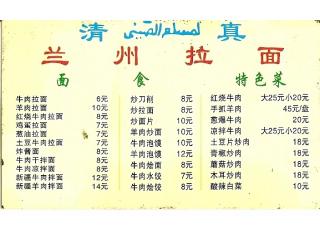 清 真
兰州拉面
面 食 特色菜
牛肉拉面 6元
羊肉拉面 10元
红烧牛肉拉面 8元
鸡蛋拉面 7元
葱油拉面 7元
土豆牛肉拉面 8元
炸酱面 8元
牛肉干拌面 8元
牛肉凉拌面 8元
新疆牛肉拌面 12元
新疆羊肉拌面 14元
炒刀削 8元
炒拉面 8元
炒面片 10元
羊肉炒面 10元
牛肉泡馍 10元
羊肉泡馍 12元
牛肉炒面 8元
牛肉水饺 7元
牛肉烩饺 8元
红烧牛肉 大25元小20元
手抓羊肉 45元/盘
葱爆牛肉 20元
凉拌牛肉 大25元小20元
土豆片炒肉 18元
青椒炒肉 18元
菠菜炒肉 18元
木耳炒肉 18元
酸辣白菜 10元